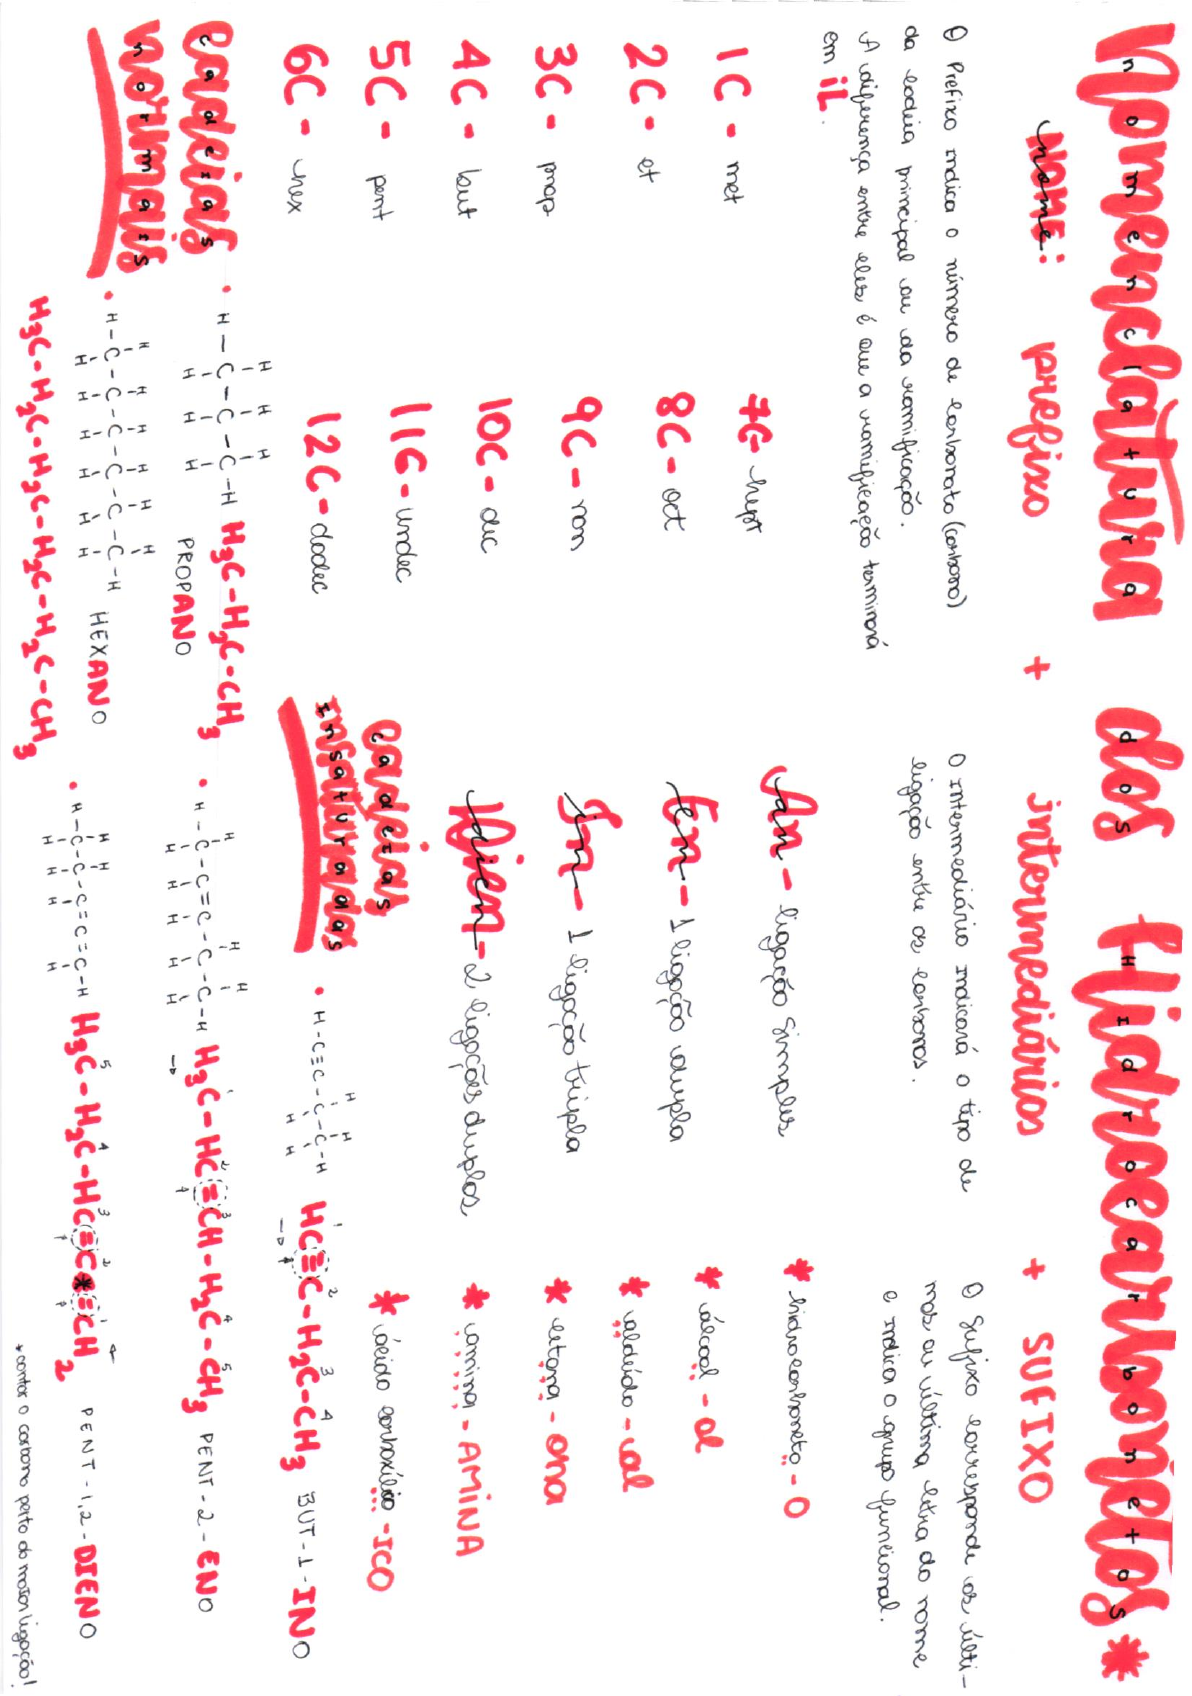 Nomenclatura dos Hidrocarbonetos *
nome: prefixo + intermediários + SUFIXO
O Prefixo indica o número de carbonato (carbono)
da cadeia principal ou da ramificação.
A diferença entre eles é que a ramificação terminará
em iL.
1C - met
2C - et
3C - prop
4C - but
5C - pent
6C - hex
7C - hept
8C - oct
9C - non
10C - dec
11C - undec
12C - dodec
O intermediário indicará o tipo de
ligação entre os carbonos.
An - ligação simples
En - 1 ligação dupla
In - 1 ligação tripla
Dien - 2 ligações duplas
O Sufixo corresponde as últi-
mas ou última letra do nome
e indica o grupo funcional.
* hidrocarboneto - O
* álcool - ol
* aldeído - al
* cetona - ona
* amina - AMINA
* ácido carboxílico - ICO
cadeias
normais
• H-C-C-C-H H3C-H2C-CH3
PROPANO
• H-C-C-C-C-C-C-H HEXANO
H3C-H2C-H2C-H2C-H2C-CH3
cadeias
Insaturadas
• H-C≡C-C-C-H HC≡C-H2C-CH3 BUT-1-INO
• H-C-C=C-C-C-H H3C-HC=CH-H2C-CH3 PENT-2-ENO
• H-C-C-C=C=C-H H3C-H2C-HC=C=CH2 PENT-1,2-DIENO
* contar o carbono perto da maior ligação!